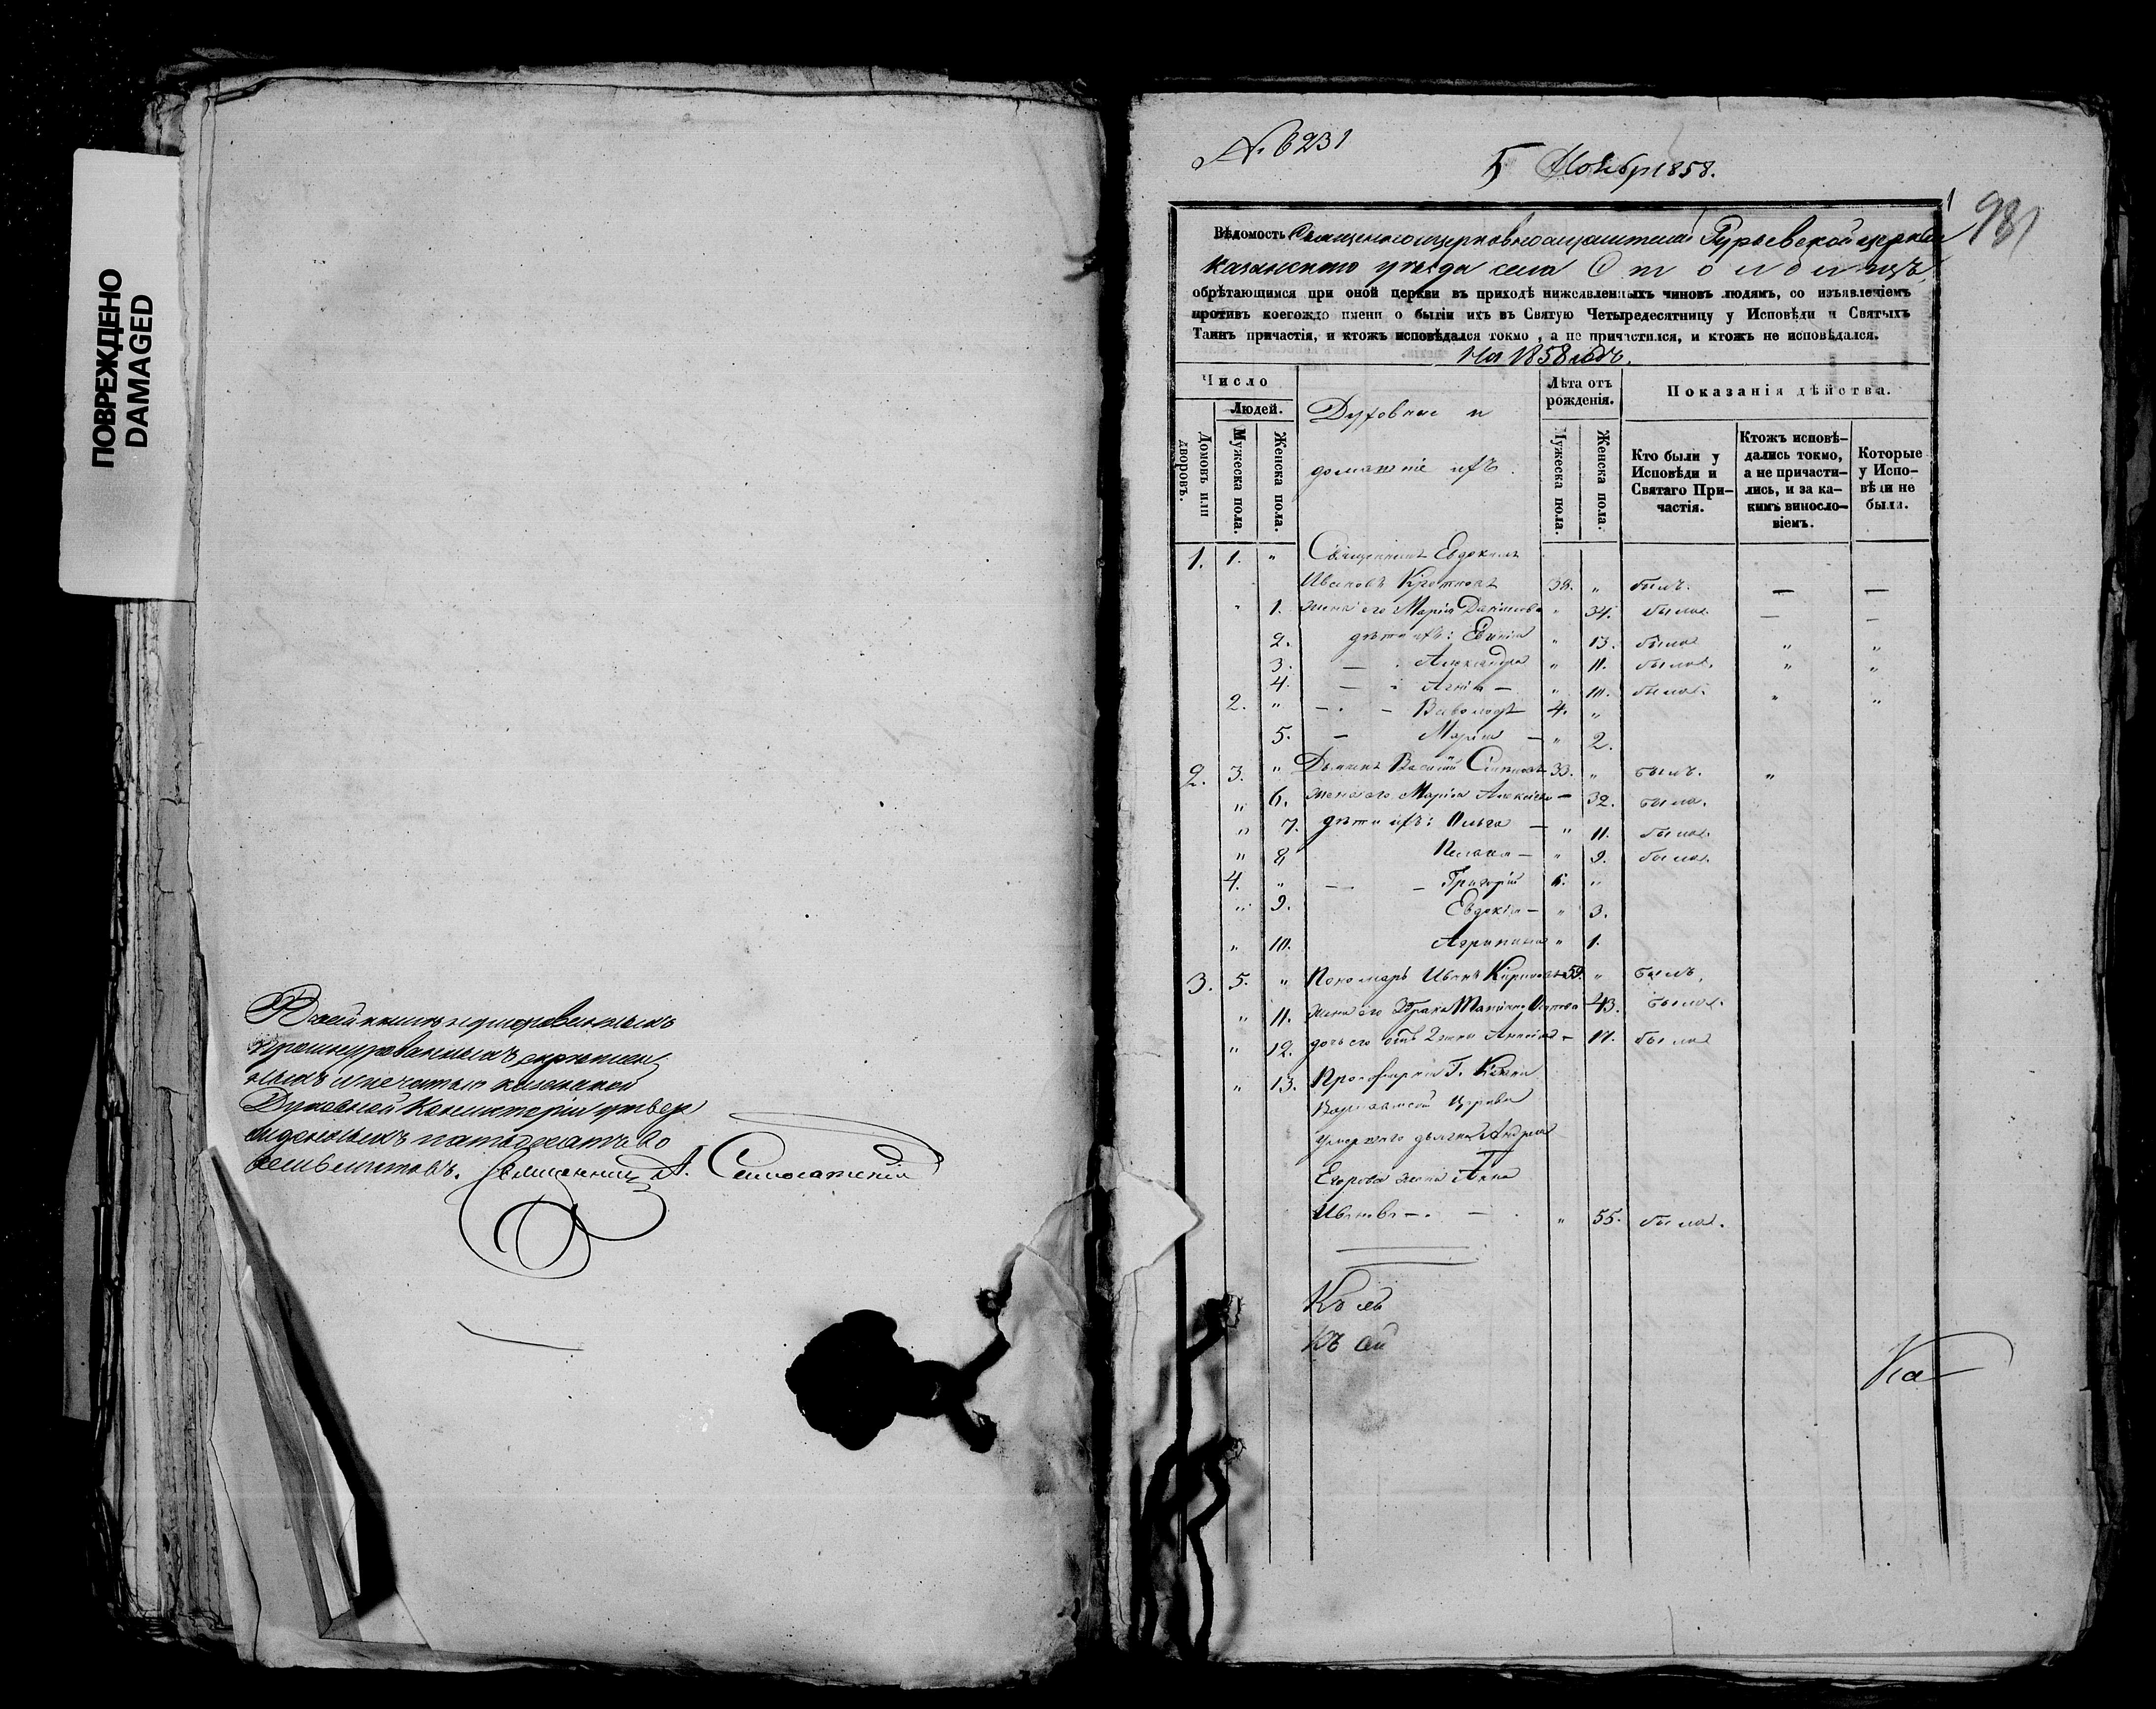 ПОВРЕЖДЕНО
DAMAGED
В сей книге нумерованныхъ
прошнурованныхъ скреплен
ныхъ и печатью казанской
Духовной Консисторіи утвер
жденныхъ пятьдесятъ
листовъ. Священникъ А.
№ 6231
5 Ноябр 1858.
1
931
Вѣдомость Священноцерковнослужителей Гурьевской церкви
Казанскаго уѣзда села
обрѣтающимся при оной церкви въ приходѣ нижеявленныхъ чиновъ людямъ, со изъявленіемъ
противъ коегождо имени о бытіи ихъ въ Святую Четыредесятницу у Исповѣди и Святыхъ
Таинъ причастія, и ктожъ исповѣдался токмо, а не причастился, и ктожъ не исповѣдался.
На 1858 годъ.
Число
Людей.
Домовъ или дворовъ.
Мужеска пола.
Женска пола.
Духовные и
домашніе ихъ.
Лѣта отъ рожденія.
Мужеска пола.
Женска пола.
Показанія дѣйства.
Кто были у Исповѣди и Святаго При-частія.
Ктожъ исповѣ-дались токмо, а не причасти-лись, и за ка-кимъ винословіемъ.
Которые у Испо-вѣди не были.
1. 1. " Священникъ Евдокимъ
Ивановъ 38. " былъ. — —
" 1. жена его Марія Данилова " 34. была. — —
2. дѣти ихъ: " 13. была " "
3. — " Александра " 11. была. " "
4. — " Агнія — " 10. была. " "
2. " — . — Всеволодъ 4. "
5. — Марія — " 2.
2. 3. " Дьяконъ Василій 33. " былъ. "
" 6. жена его Марія Алексѣева — 32. была.
" 7. дѣти ихъ: Ольга — " 11. была.
" 8 Пелагея — " 9. была.
4. " — — Григорій 6. "
" 9. Евдокія — " 3.
" 10. Агрипина " 1.
3. 5. " Пономарь Иванъ Кириловъ 59. " былъ.
" 11. жена его 2 брака Татьяна 43. была.
" 12. дочь его отъ 2 жены — 17. была
" 13. Просфирня Г. Казани
Варламской Церкви
умершаго дьячка Андрея
Егорова жена Анна
Иванова — . — . " 55. была.
Къ сей
Къ сей
Ка